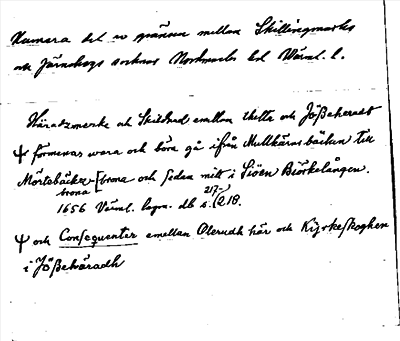 Numera del av gränsen mellan Skillingmarks
och Järnskogs socknar Nordmarks hd Värml. l.
Häradzmerke och Skildnad emellan thetta och Jößeheradt
ψ förmenas wara och böra gå ifrån Mullkärnsbäcken till
Mörtebäckz-[brona och sedan mitt i Siöen Biörkelången.
brona
1656 Värml. lagm. db s. 217-218.
ψ och Consequenter emellan Olerudh här och Kyrkeskoghen
i Jößehäradh